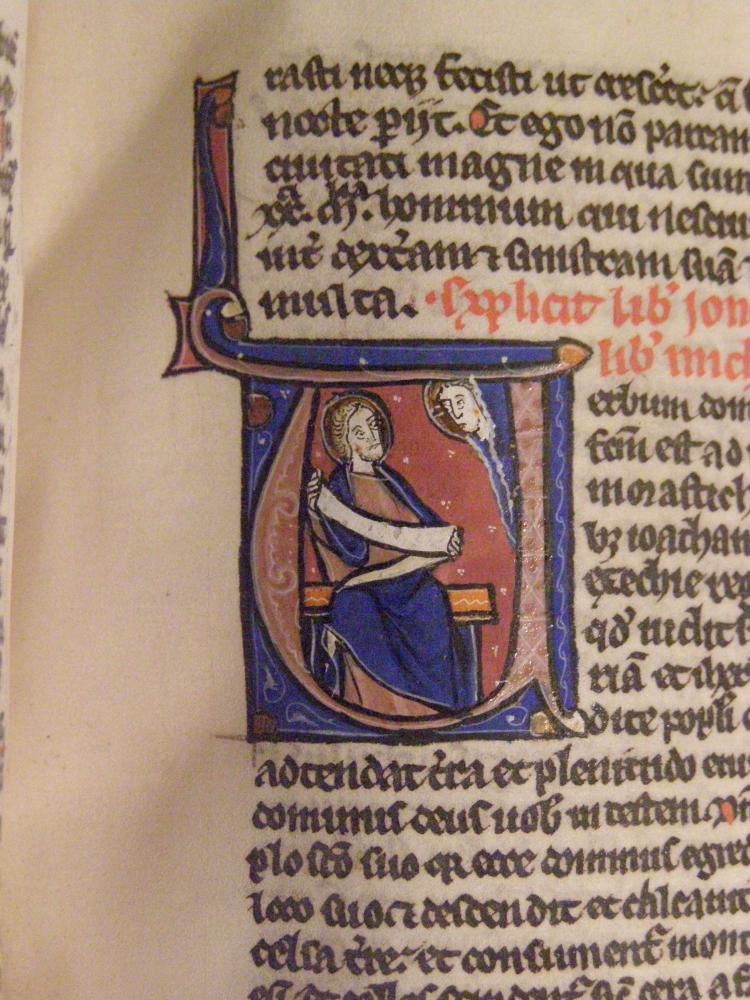 rasti neq; fecisti ut cresc̄et: q̄
nocte periit. Et ego nō parcam
ciuitati magne in qua sunt
hominum qui nesciu
iūt dexterām ⁊ sinistram suā
multa. Explicit lib' Jon
lib' mich
erbum dom
fc̄m est ad
morastich
bz ioathan
ezechie reg
qd' uidit s
riā et iher
dite popl'i
adtendat t̄ra et plenitudo eius
dominus deus uob' in testem.
plo sc̄o suo qr ecce dominus egred
loco suo ⁊ descendit et calcauit
celsa t̄re: et consument̄ mont
cera a f